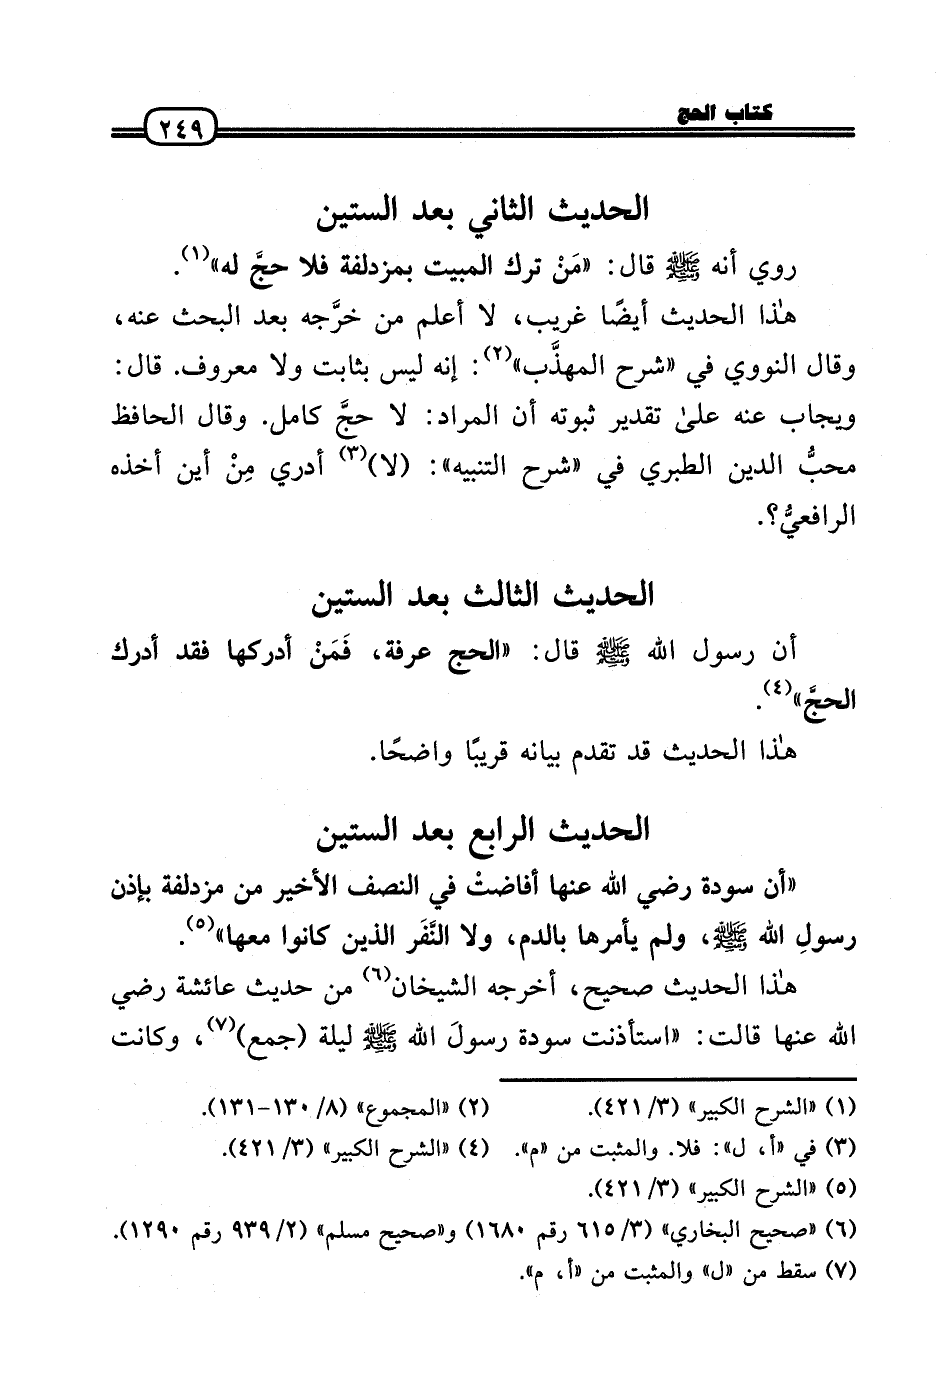 كتاب الحج
٢٤٩
الحديث الثاني بعد الستين
روي أنه ﷺ قال: «مَنْ ترك المبيت بمزدلفة فلا حجَّ له»(١).
هٰذا الحديث أيضًا غريب، لا أعلم من خرَّجه بعد البحث عنه،
وقال النووي في «شرح المهذَّب»(٢): إنه ليس بثابت ولا معروف. قال:
ويجاب عنه علىٰ تقدير ثبوته أن المراد: لا حجَّ كامل. وقال الحافظ
محبُّ الدين الطبري في «شرح التنبيه»: (لا)(٣) أدري مِنْ أين أخذه
الرافعيُّ؟.
الحديث الثالث بعد الستين
أن رسول الله ﷺ قال: «الحج عرفة، فَمَنْ أدركها فقد أدرك
الحجَّ»(٤).
هٰذا الحديث قد تقدم بيانه قريبًا واضحًا.
الحديث الرابع بعد الستين
«أن سودة رضي الله عنها أفاضتْ في النصف الأخير من مزدلفة بإذن
رسولِ الله ﷺ، ولم يأمرها بالدم، ولا النَّفَر الذين كانوا معها»(٥).
هٰذا الحديث صحيح، أخرجه الشيخان(٦) من حديث عائشة رضي
الله عنها قالت: «استأذنت سودة رسولَ الله ﷺ ليلة (جمع)(٧)، وكانت
(١) «الشرح الكبير» (٣/ ٤٢١). (٢) «المجموع» (٨/ ١٣٠-١٣١).
(٣) في «أ، ل»: فلا. والمثبت من «م». (٤) «الشرح الكبير» (٣/ ٤٢١).
(٥) «الشرح الكبير» (٣/ ٤٢١).
(٦) «صحيح البخاري» (٣/ ٦١٥ رقم ١٦٨٠) و«صحيح مسلم» (٢/ ٩٣٩ رقم ١٢٩٠).
(٧) سقط من «ل» والمثبت من «أ، م».